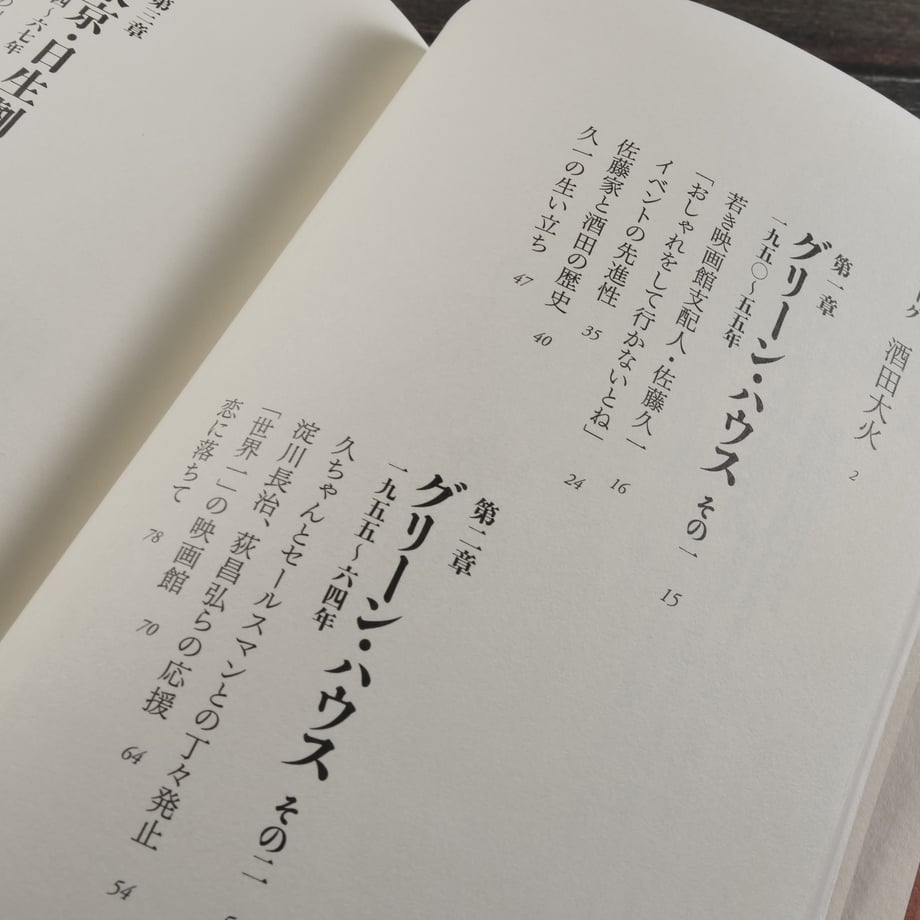 酒田大火 2
第一章
グリーン・ハウス その一 15
一九五〇〜五五年
若き映画館支配人・佐藤久一 16
「おしゃれをして行かないとね」 24
イベントの先進性 35
佐藤家と酒田の歴史 40
久一の生い立ち 47
第二章
グリーン・ハウス その二
一九五五〜六四年
久ちゃんとセールスマンとの丁々発止 54
淀川長治、荻昌弘らの応援 64
「世界一」の映画館 70
恋に落ちて 78
第三章
京・日生劇
〜六七年